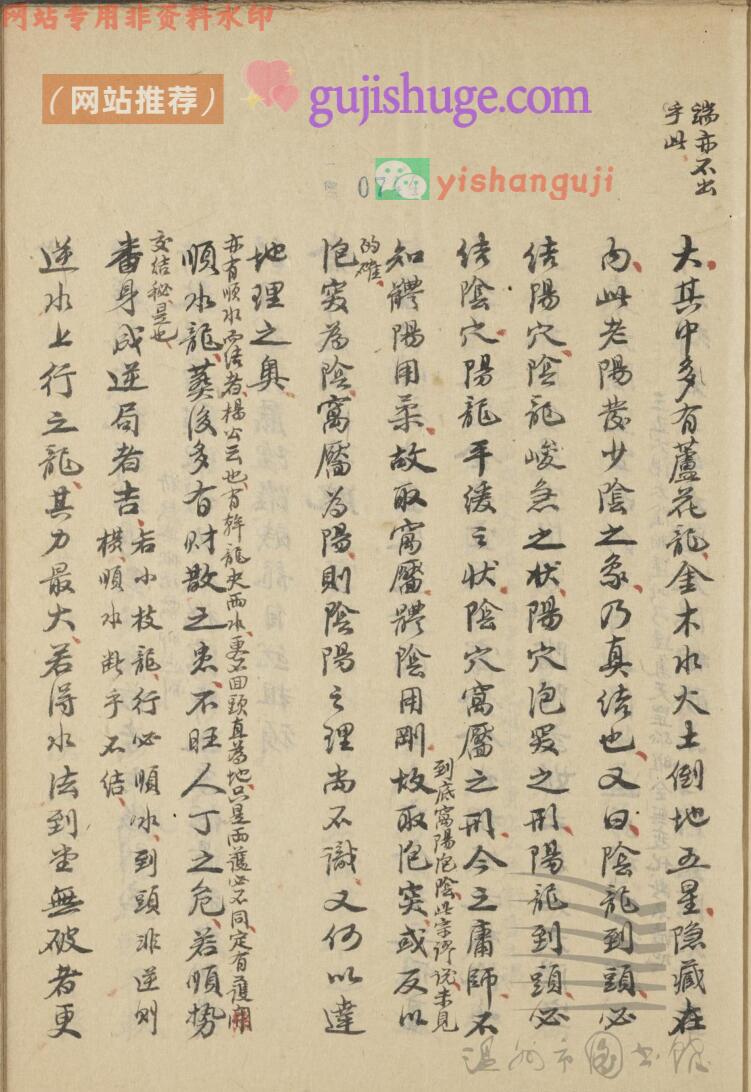 网站专用非资料水印
（网站推荐）
gujishuge.com
yishanguji
0744
端亦不出
乎此
大其中多有蘆花龍金木水火土倒地五星隐藏在
内此老陽發少陰之象乃真结也又曰陰龍到頭必
结陽穴陰龍峻急之状陽穴泡突之形陽龍到頭必
结陰穴陽龍平缓之状陰穴窩靨之形今之庸師不
到底窩陽泡陰此宗謬说未見
的確
知體陽用柔故取窩靨體陰用剛故取泡突或反以
泡突為陰窩靨為陽則陰陽之理尚不識又何以達
地理之奥
亦有順水而结者楊公云也有幹龍夾两水更不回頭直為地只是两護必不同定有護用
交结秘是也
順水龍葬後多有财散之患不旺人丁之危若順勢
番身成逆局者吉
若小枝龍行必順水到頭非逆则
横順水斷乎不结
逆水上行之龍其力最大若得水法到堂無破者更
温州市图书馆